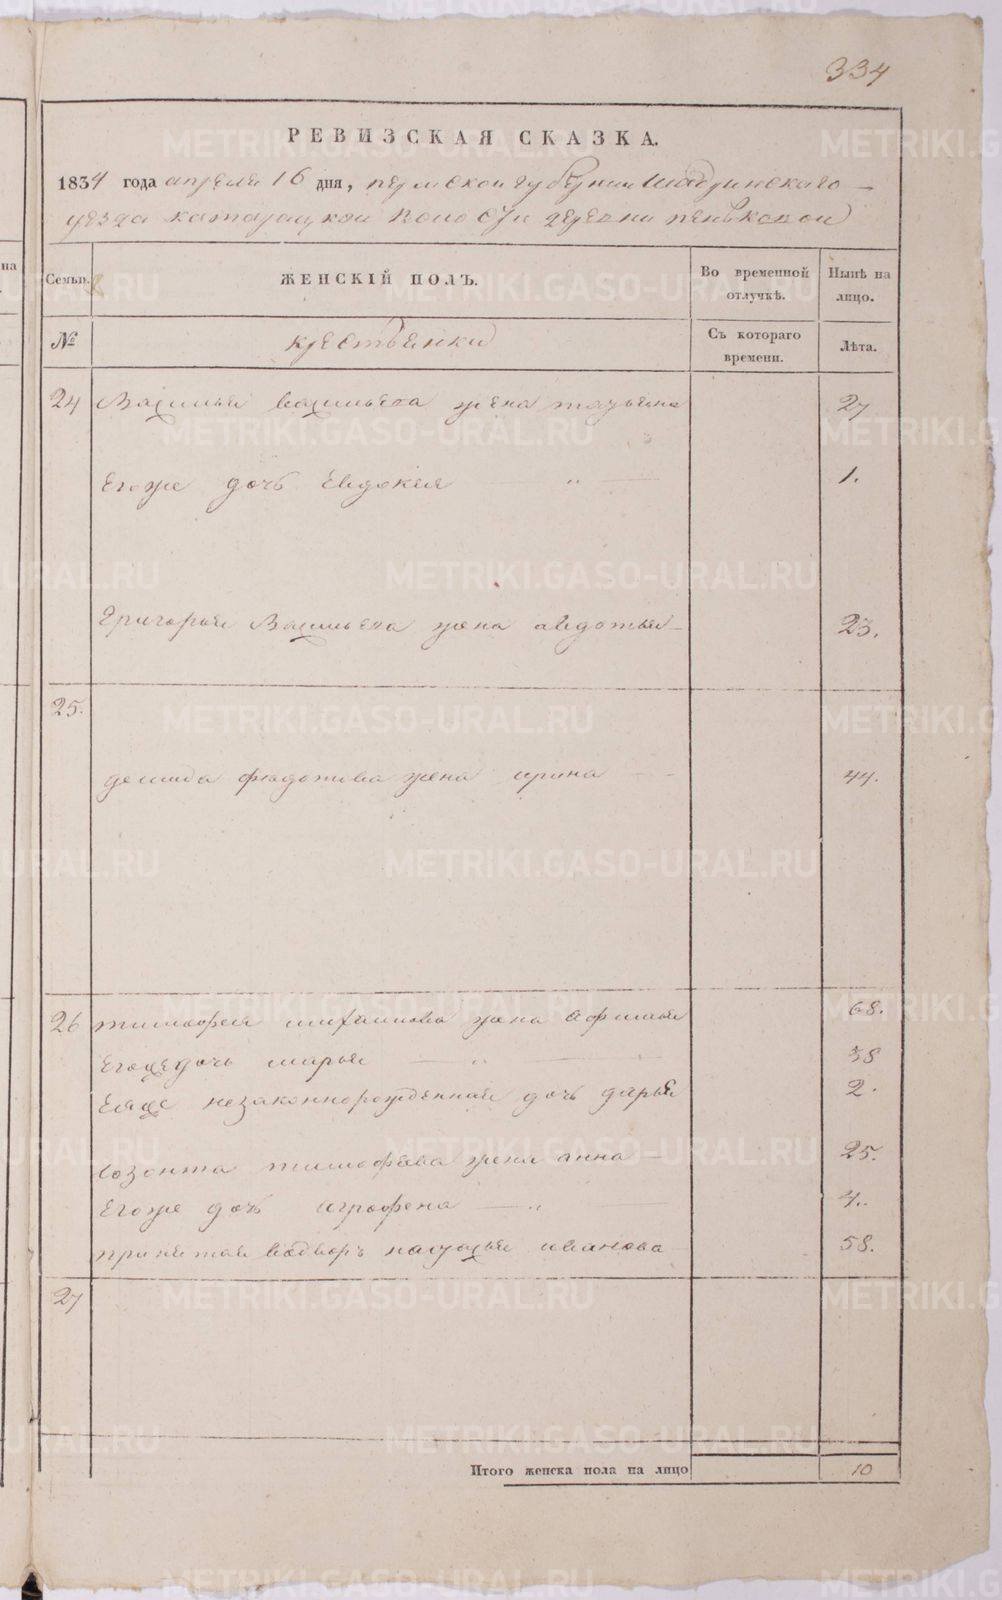 334
РЕВИЗСКАЯ СКАЗКА.
1834 года апреля 16 дня, пермской губернии Шадринскаго
уезда катайской волости деревни пеньковой
на
Семьи. ЖЕНСКІЙ ПОЛЪ. Во временной отлучкѣ. Нынѣ на лицо.
№ крестьянки Съ котораго времени. Лѣта.
24 Василья васильева жена татьяна 27
Егоже дочь Евдокея " 1.
Григорья Васильева жена авдотья 23.
25.
демида федотива жена ирина 44.
26 тимофея михаилова жена Афимья 68.
Егоже дочь марья " 38
Еяже незаконнорожденная дочь дарья 2.
созонта тимофеева жена анна 25.
Егоже дочь аграфена " 4.
принятая водворъ насталья иванова 58.
27
Итого женска пола на лицо 10
METRIKI.GASO-URAL.RU